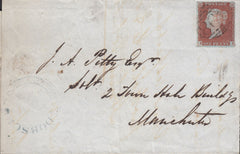 J. A. Petty Esqr
Solr
2 Town Hall Buildgs
Manchester